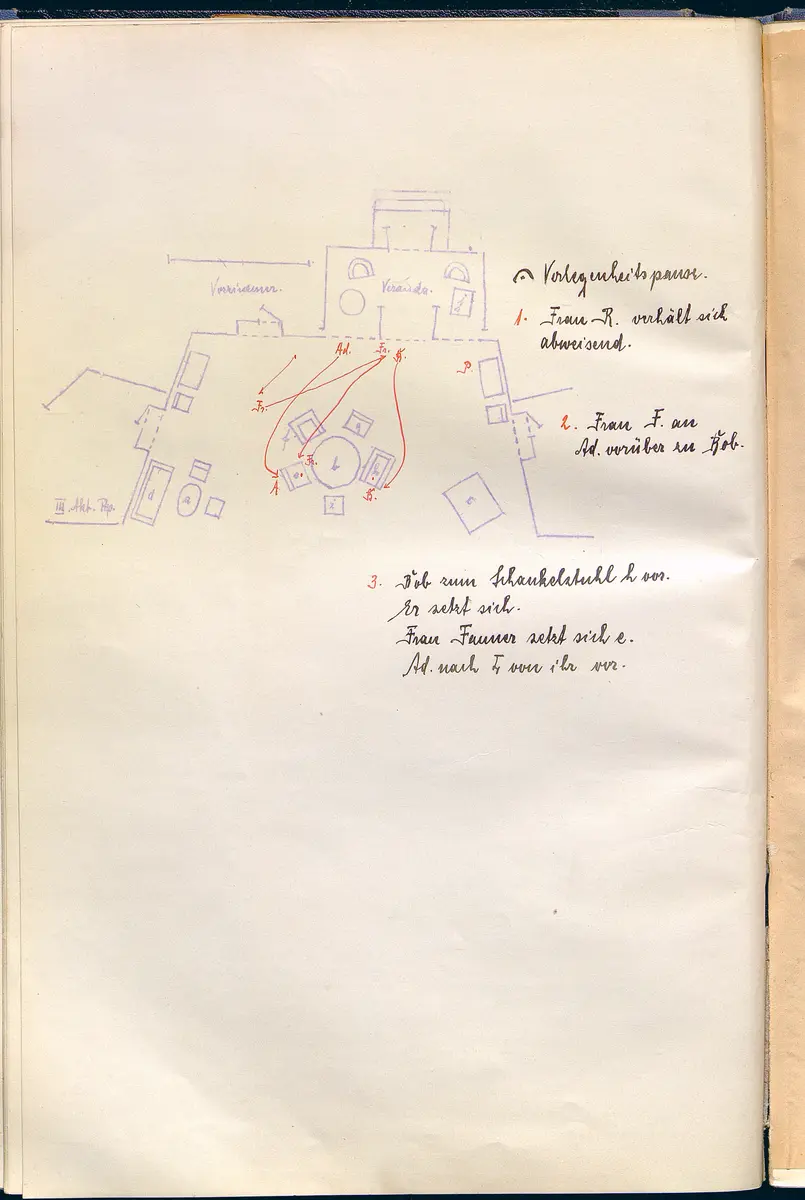 Vorzimmer.
Veranda.
Verlegenheitspause.
1. Frau R. verhält sich
abweisend.
Ad. Fr. B.
P.
Fr.
2. Frau F. an
Ad. vorüber zu Bob.
f
g
Fr.
A
e
b
h
B.
i
d
a
c
III. Akt. Pp.
3. Bob zum Schaukelstuhl h vor.
Er setzt sich.
Frau Fanner setzt sich e.
Ad. nach L von ihr vor.